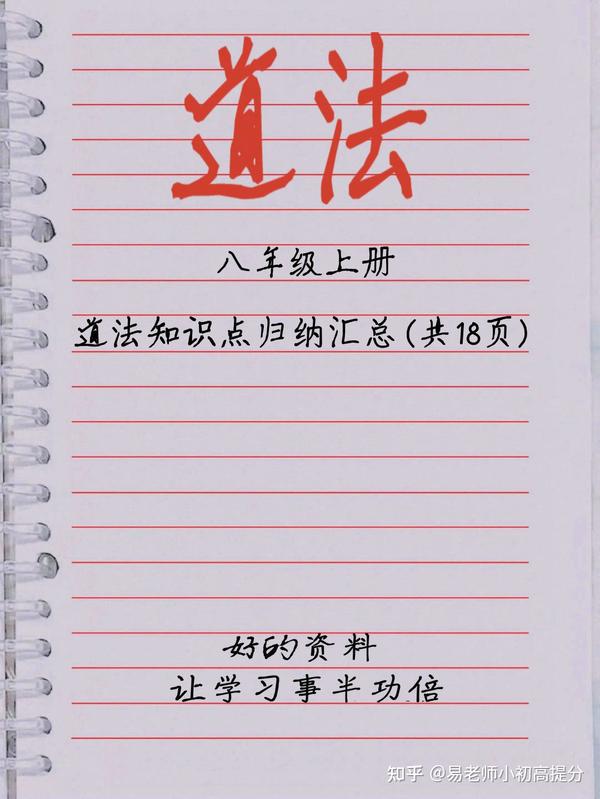 道法
八年级上册
道法知识点归纳汇总(共18页)
好的资料
让学习事半功倍
知乎 @易老师小初高提分